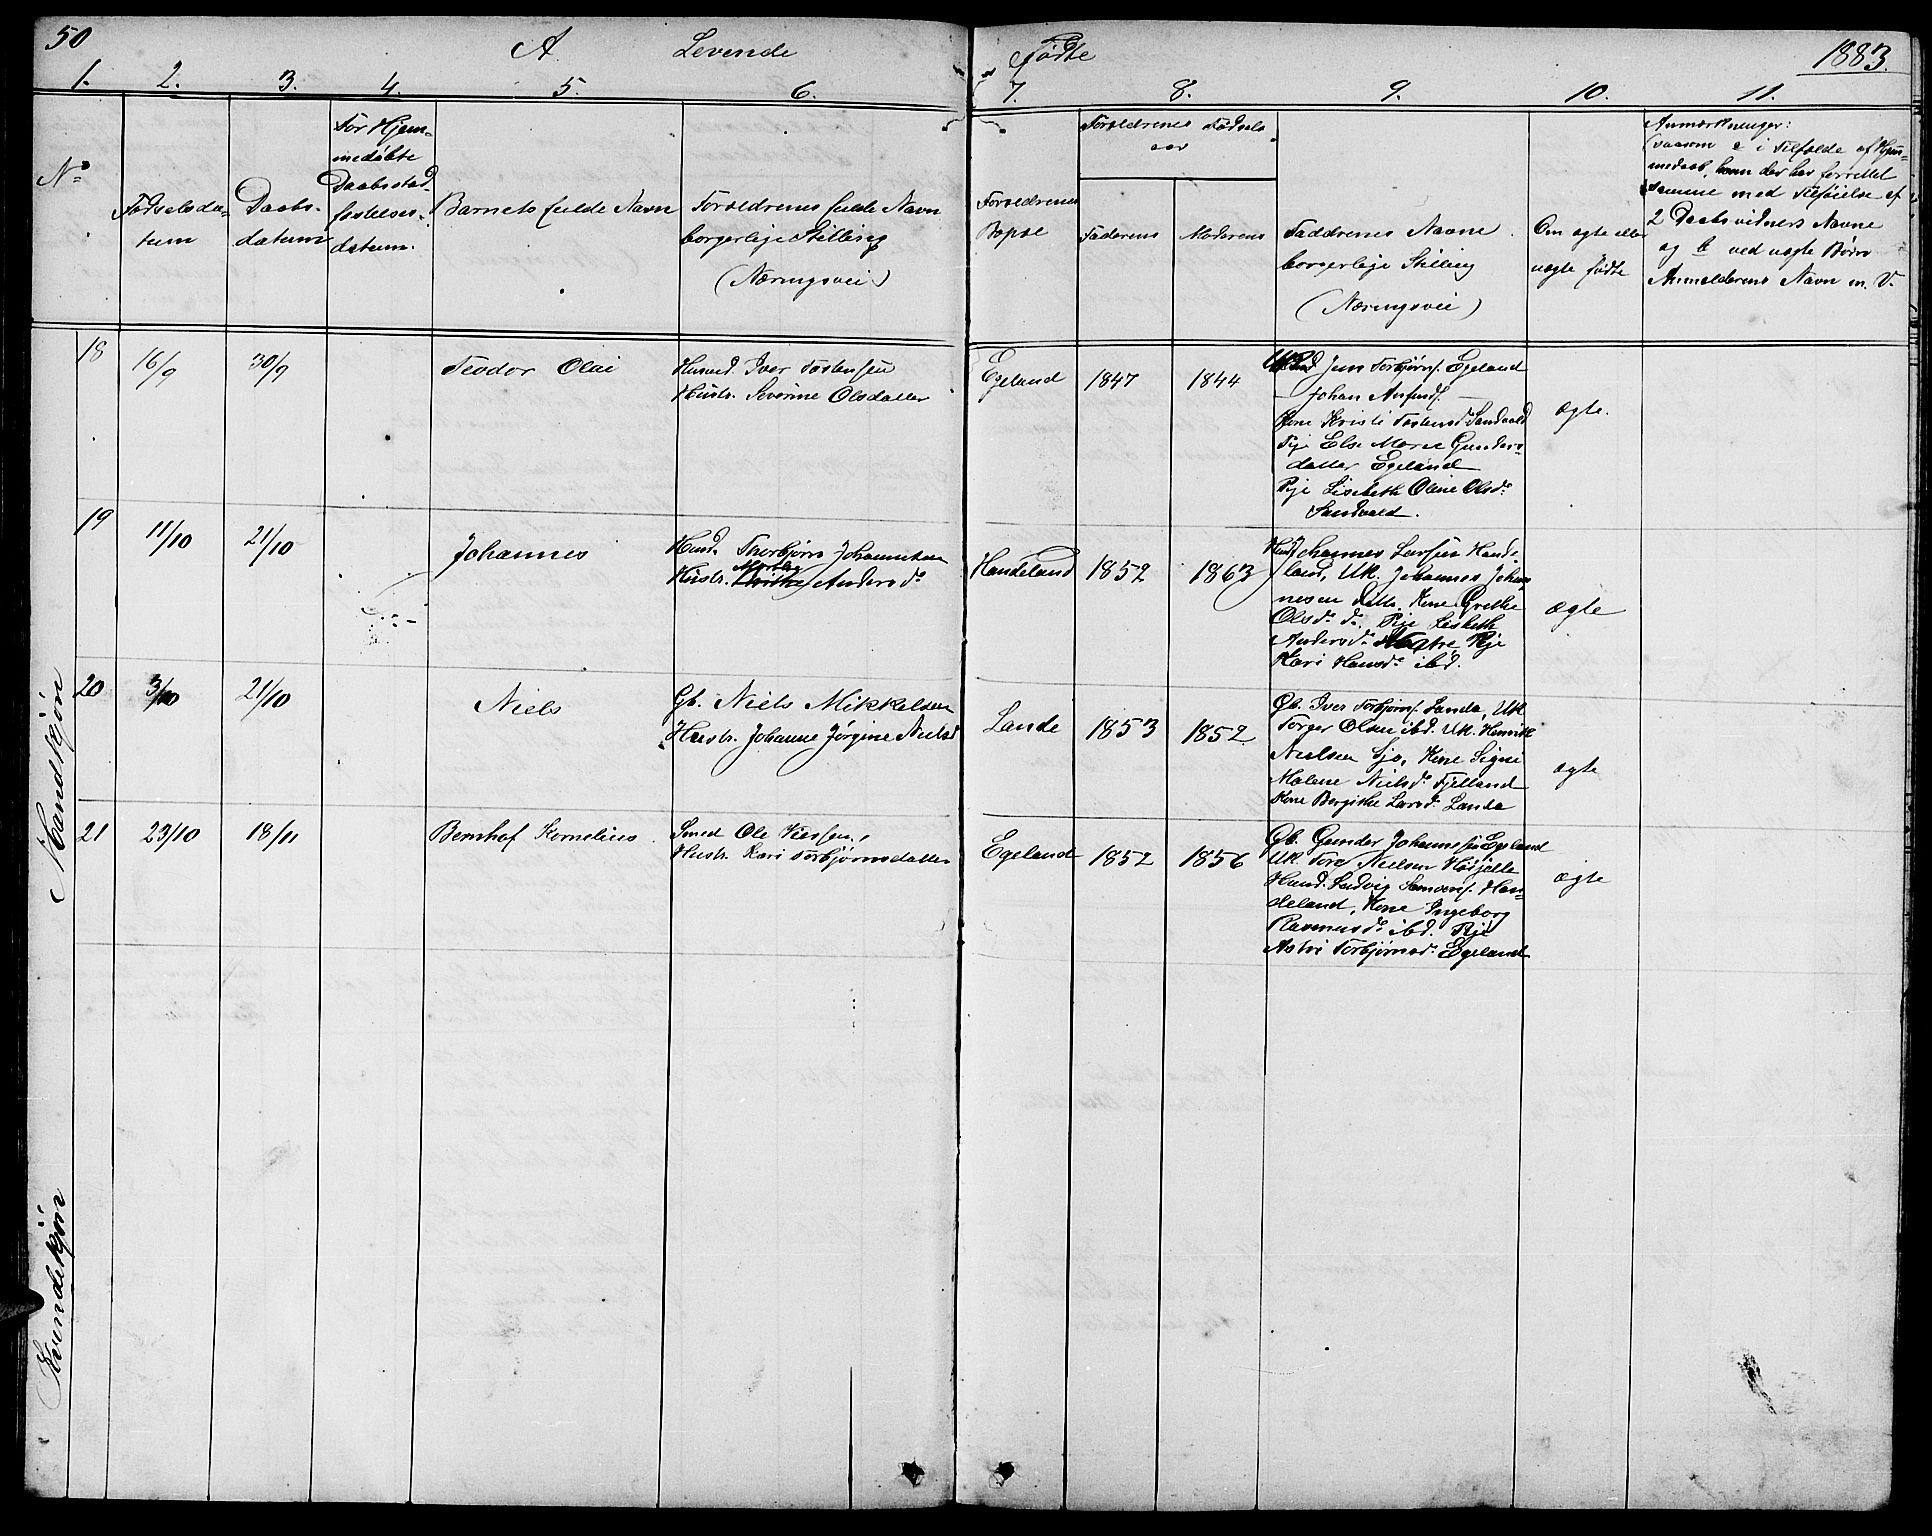 50
A Levende Fødte 1883.
1. 2. 3. 4. 5. 6. 7. 8. 9. 10. 11.
No
Fødselsda-
tum
Daabs-
datum
For Hjem-
medøbte
Daabsstad-
festelses-
datum.
Barnets fulde Navn
Forældrenes fulde Navn
borgerlige Stilling
(Næringsvei)
Forældrenes
Bopæl
Forældrenes Fødsels
aar
Faderens
Moderens
Faddrenes Navne
borgerlige Stilling
(Næringsvei)
Om ægte eller
uægte fødte
Anmærkninger:
saasom a i Tilfælde af Hjem-
medaab, hvem der har forrettet
samme med Tilføielse af
2 Daabsvidners Navne
og b ved uægte Børn
Anmelderens Navn m. V.
Mandkjøn
18 16/9 30/9 Teodor Olai
Husmd. Iver Tostensen
Hustr. Severine Olsdatter
Egeland 1847 1844
Jens Torbjørns. Egeland
Johan
Kone Kristi Tostensd. Sandvald
Pige Else Marie Gunders-
datter Egeland
Pije Lisebeth Oline Olsd.
Sandvald.
ægte.
19 11/10 21/10 Johannes
Husmd. Thorbjørn Johannesen
Hustr. Martha Andersd.
Handeland 1852 1863
Husmd. Johannes Larsen Hande-
land, Uk. Johannes Johan-
nesen, Kone Grethe
Olsd. d. Pije Lisbeth
Andersd. Pije
Kari Hansd. ibd.
ægte
20 3/10 21/10 Niels
Gb. Niels Mikkelsen
Hustr. Johanne Jørgine Nielsd.
Lande 1853 1852
Gb. Iver Torbjørns. Landa, Uk.
Torger Olsen ibd. Uk. Henrik
Nielsen Sjo, Kone Signe
Malene Nielsd. Fjelland
Kone Bergithe Larsd. Landa
ægte
21 23/10 18/11 Bernhof Kornelius.
Smed Ole
Hustr. Kari Torbjørnsdatter
Egeland 1852 1856
Gb. Gunder Johannesen Egeland
Uk. Tore Nielsen
Husmd. Ludvig Han-
deland, Kone Ingeborg
Rasmusd. ibd. Pije
Astri Torbjørnsd. Egeland
ægte
Kvindekjøn